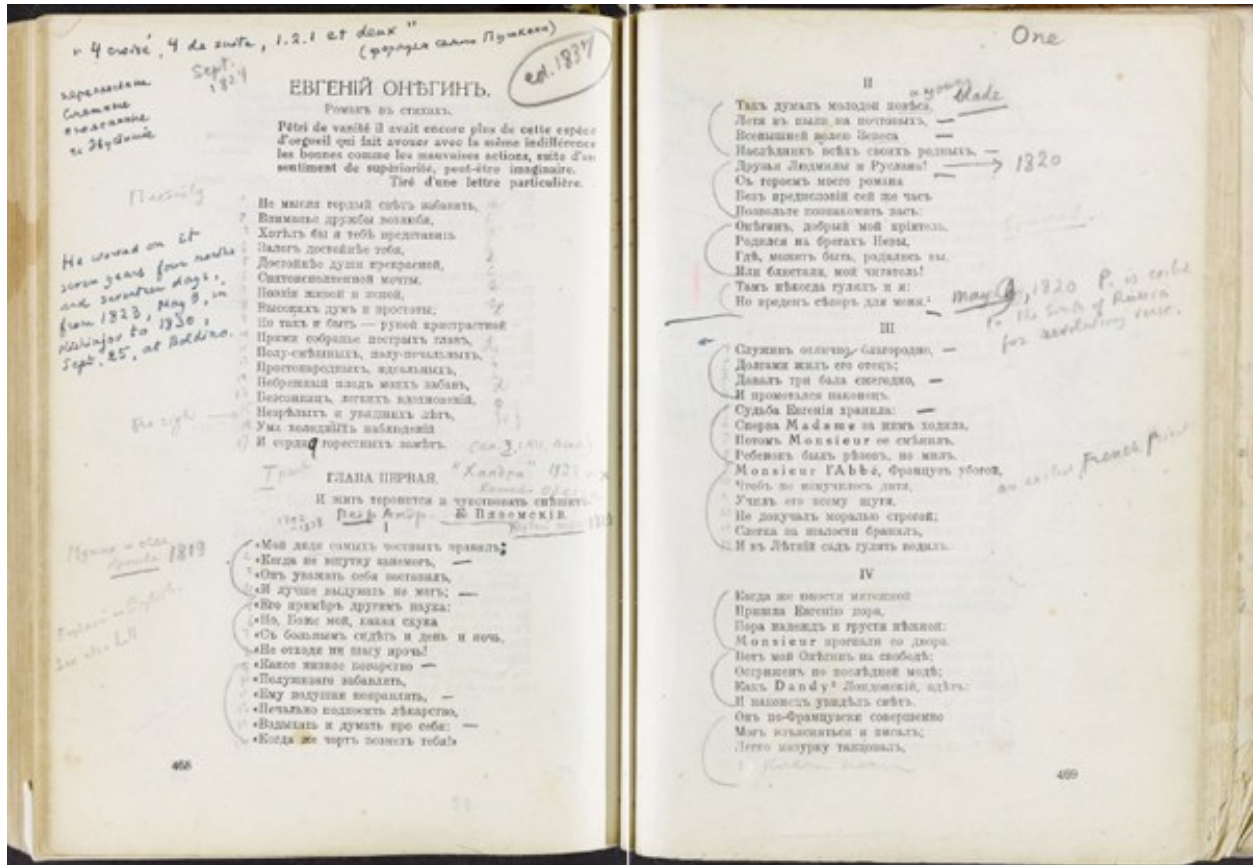 "4 croisé, 4 de suite, 1.2.1 et deux"
(формула самого Пушкина)
Sept.
1824
ed. 1837
ЕВГЕНІЙ ОНѢГИНЪ.
Романъ въ стихахъ.
Pétri de vanité il avait encore plus de cette espèce
d'orgueil qui fait avouer avec la même indifférence
les bonnes comme les mauvaises actions, suite d'un
sentiment de supériorité, peut-être imaginaire.
Tiré d'une lettre particulière.
He worked on it
seven years four months
and seventeen days,
from 1823, May 9, in
Kishinev to 1830,
Sept. 25, at Boldino.
Не мысля гордый свѣтъ забавить,
Вниманье дружбы возлюбя,
Хотѣлъ бы я тебѣ представить
Залогъ достойнѣе тебя,
Достойнѣе души прекрасной,
Святоисполненной мечты,
Поэзіи живой и ясной,
Высокихъ думъ и простоты;
Но такъ и быть — рукой пристрастной
Прими собранье пестрыхъ главъ,
Полу-смѣшныхъ, полу-печальныхъ,
Простонародныхъ, идеальныхъ,
Небрежный плодъ моихъ забавъ,
Безсонницъ, легкихъ вдохновеній,
Незрѣлыхъ и увядшихъ лѣтъ,
Ума холодныхъ наблюденій
И сердца горестныхъ замѣтъ.
ГЛАВА ПЕРВАЯ.
"Хандра"
И жить торопится и чувствовать спѣшитъ.
К. Вяземскій.
I
1819
«Мой дядя самыхъ честныхъ правилъ;
«Когда не въ шутку занемогъ, —
«Онъ уважать себя заставилъ,
«И лучше выдумать не могъ; —
«Его примѣръ другимъ наука:
«Но, Боже мой, какая скука
«Съ больнымъ сидѣть и день и ночь,
«Не отходя ни шагу прочь!
«Какое низкое коварство —
«Полуживаго забавлять,
«Ему подушки поправлять, —
«Печально подносить лѣкарство,
«Вздыхать и думать про себя: —
«Когда же чортъ возьметъ тебя!»
468
One
II
a young blade
Такъ думалъ молодой повѣса,
Летя въ пыли на почтовыхъ, —
Всевышней волею Зевеса —
Наслѣдникъ всѣхъ своихъ родныхъ. —
Друзья Людмилы и Руслана! → 1820
Съ героемъ моего романа
Безъ предисловій сей же часъ
Позвольте познакомить васъ:
Онѣгинъ, добрый мой пріятель,
Родился на брегахъ Невы,
Гдѣ, можетъ быть, родились вы,
Или блистали, мой читатель!
Тамъ нѣкогда гулялъ и я:
Но вреденъ сѣверъ для меня.¹
May 1820 P. is exiled
to the South of Russia
for revolutionary verse.
III
Служивъ отлично, благородно, —
Долгами жилъ его отецъ;
Давалъ три бала ежегодно, —
И промотался наконецъ.
Судьба Евгенія хранила: —
Сперва Madame за нимъ ходила,
Потомъ Monsieur ее смѣнилъ.
Ребенокъ былъ рѣзовъ, но милъ.
Monsieur l'Abbé, Французъ убогой,
Чтобъ не измучилось дитя,
Училъ его всему шутя,
Не докучалъ моралью строгой;
Слегка за шалости бранилъ,
И въ Лѣтній садъ гулять водилъ.
French priest
IV
Когда же юности мятежной
Пришла Евгенію пора,
Пора надеждъ и грусти нѣжной:
Monsieur прогнали со двора.
Вотъ мой Онѣгинъ на свободѣ;
Остриженъ по послѣдней модѣ;
Какъ Dandy² Лондонскій, одѣтъ:
И наконецъ увидѣлъ свѣтъ.
Онъ по-Французски совершенно
Могъ изъясняться и писалъ;
Легко мазурку танцовалъ,
469